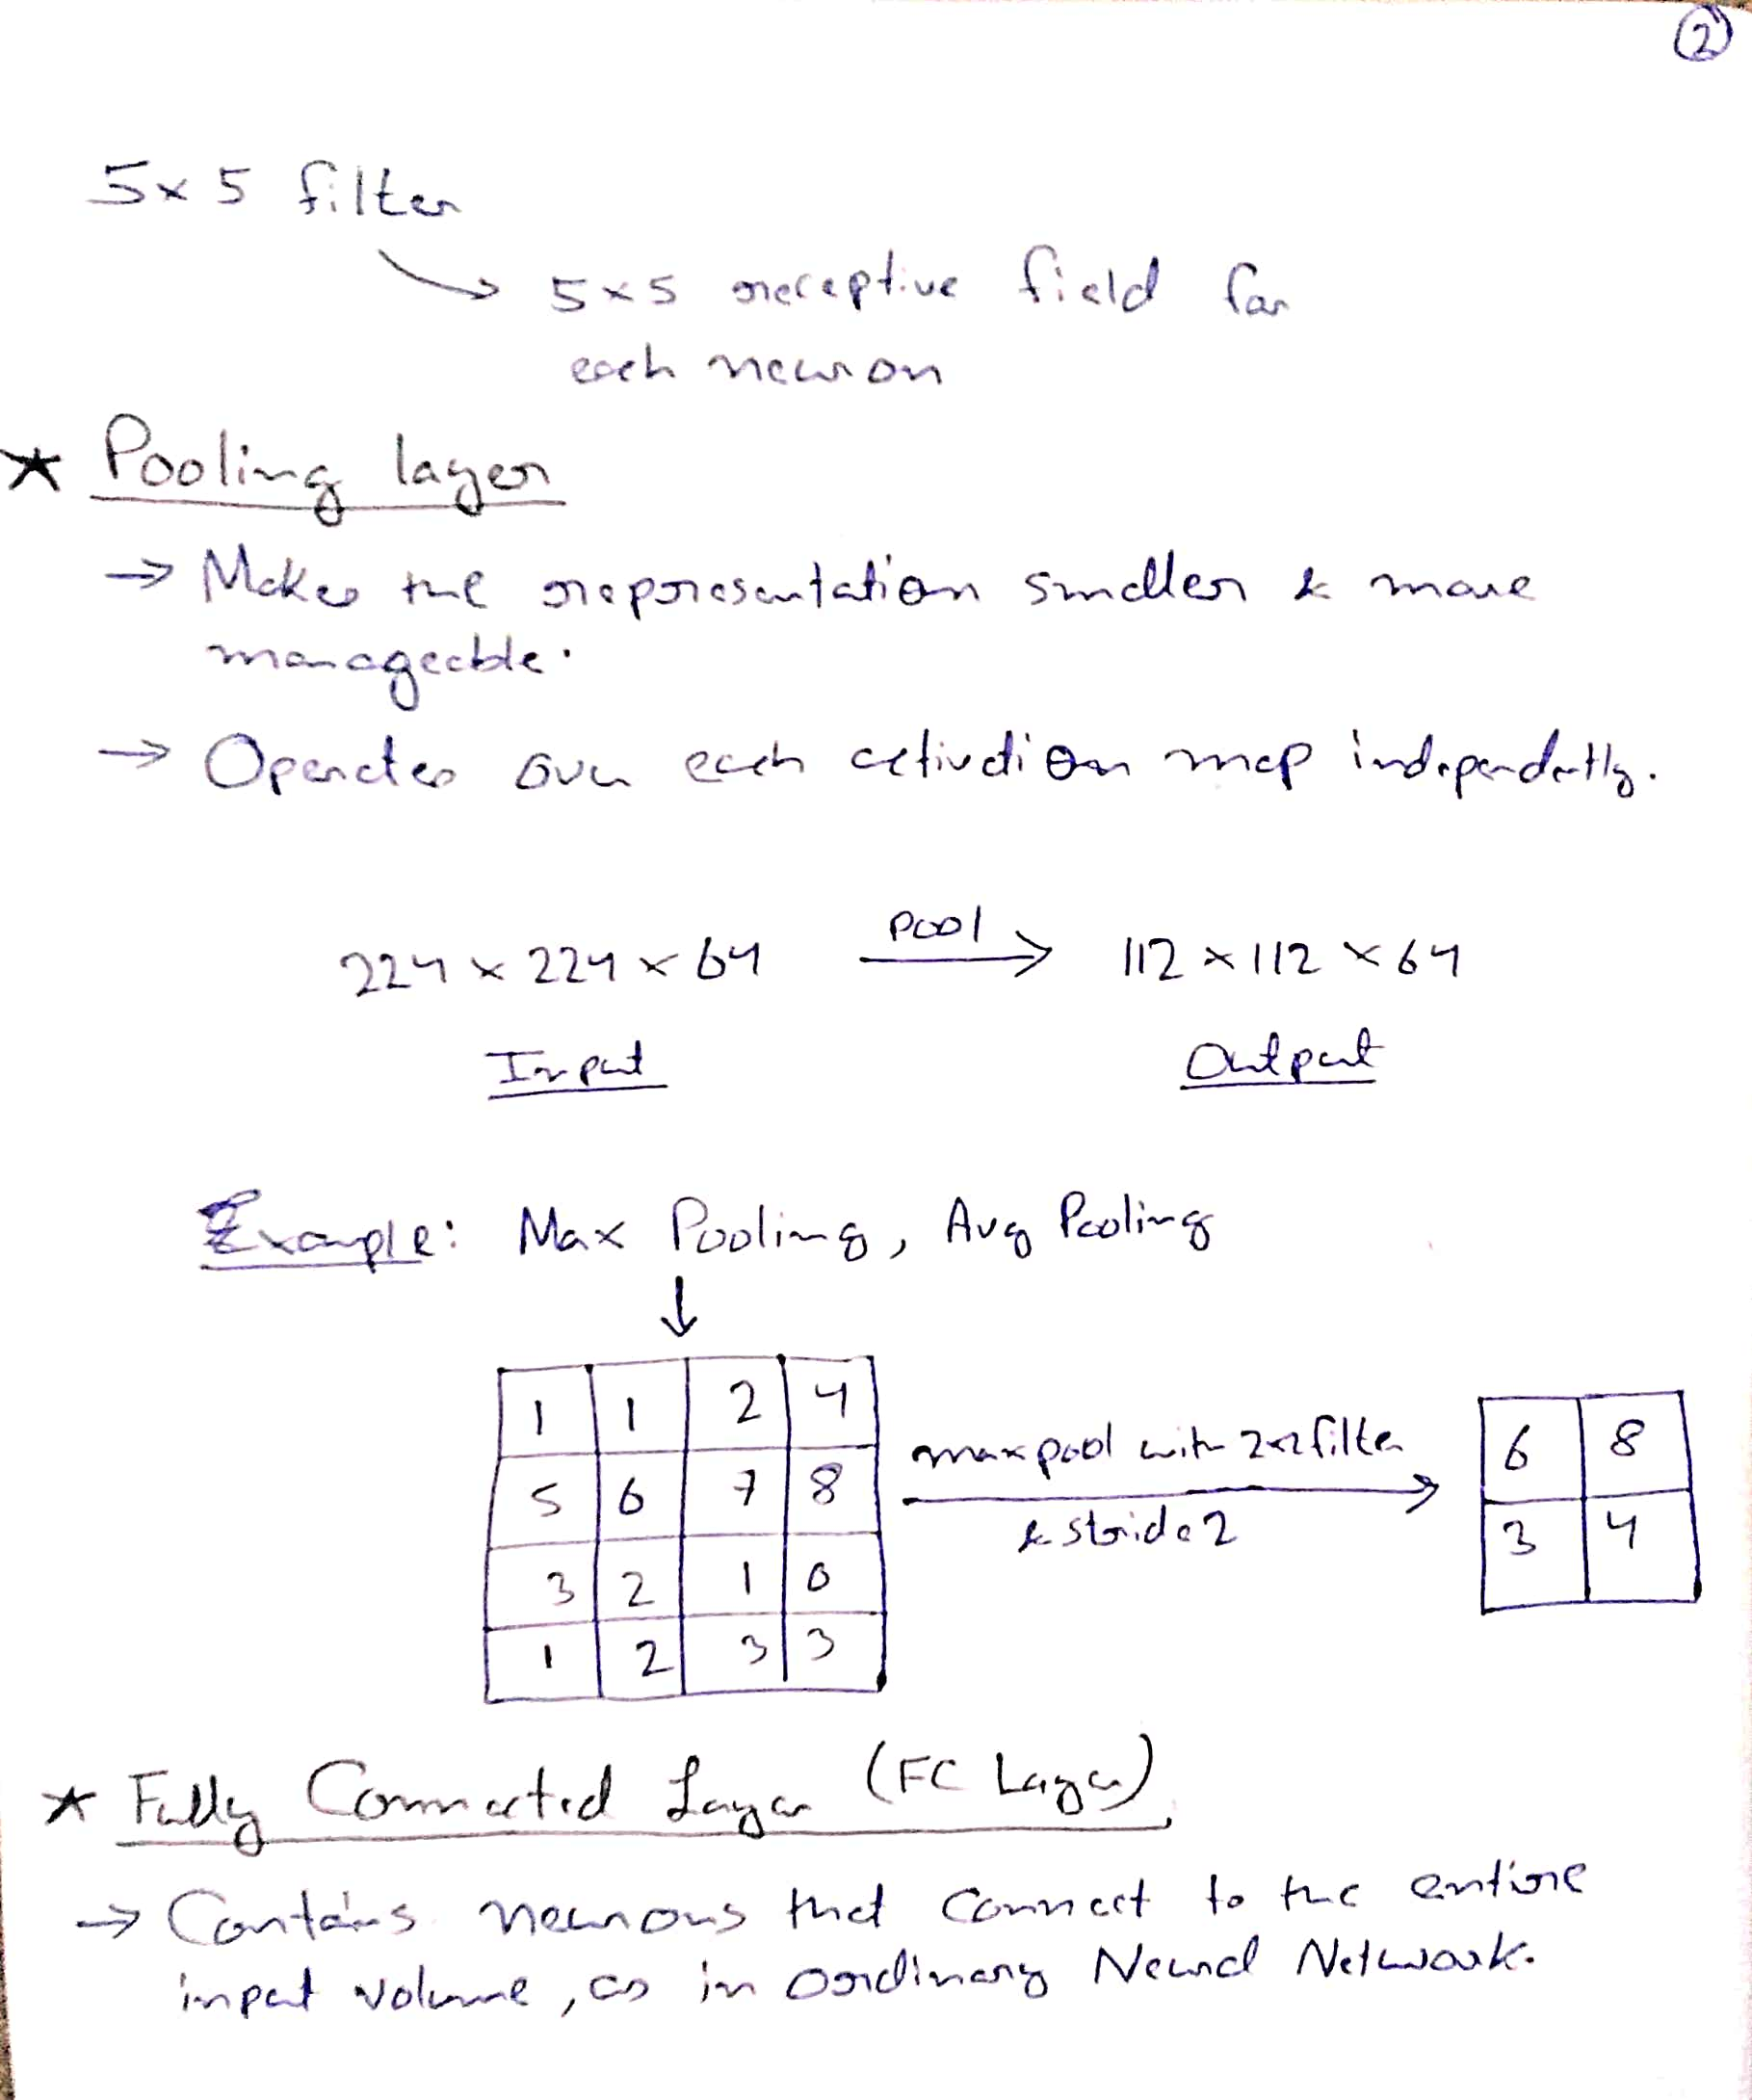 2
5x5 filter
5x5 receptive field for
each neuron
* Pooling layer
→ Makes the representation smaller & more
manageable.
→ Operates over each activation map independently.
224 x 224 x 64 pool → 112 x 112 x 64
Input Output
Example: Max Pooling, Avg Pooling
↓
1 1 2 4
5 6 7 8
3 2 1 0
1 2 3 3
maxpool with 2x2 filter
& stride 2
6 8
3 4
* Fully Connected Layer (FC Layer)
→ Contains neurons that connect to the entire
input volume, as in ordinary Neural Network.